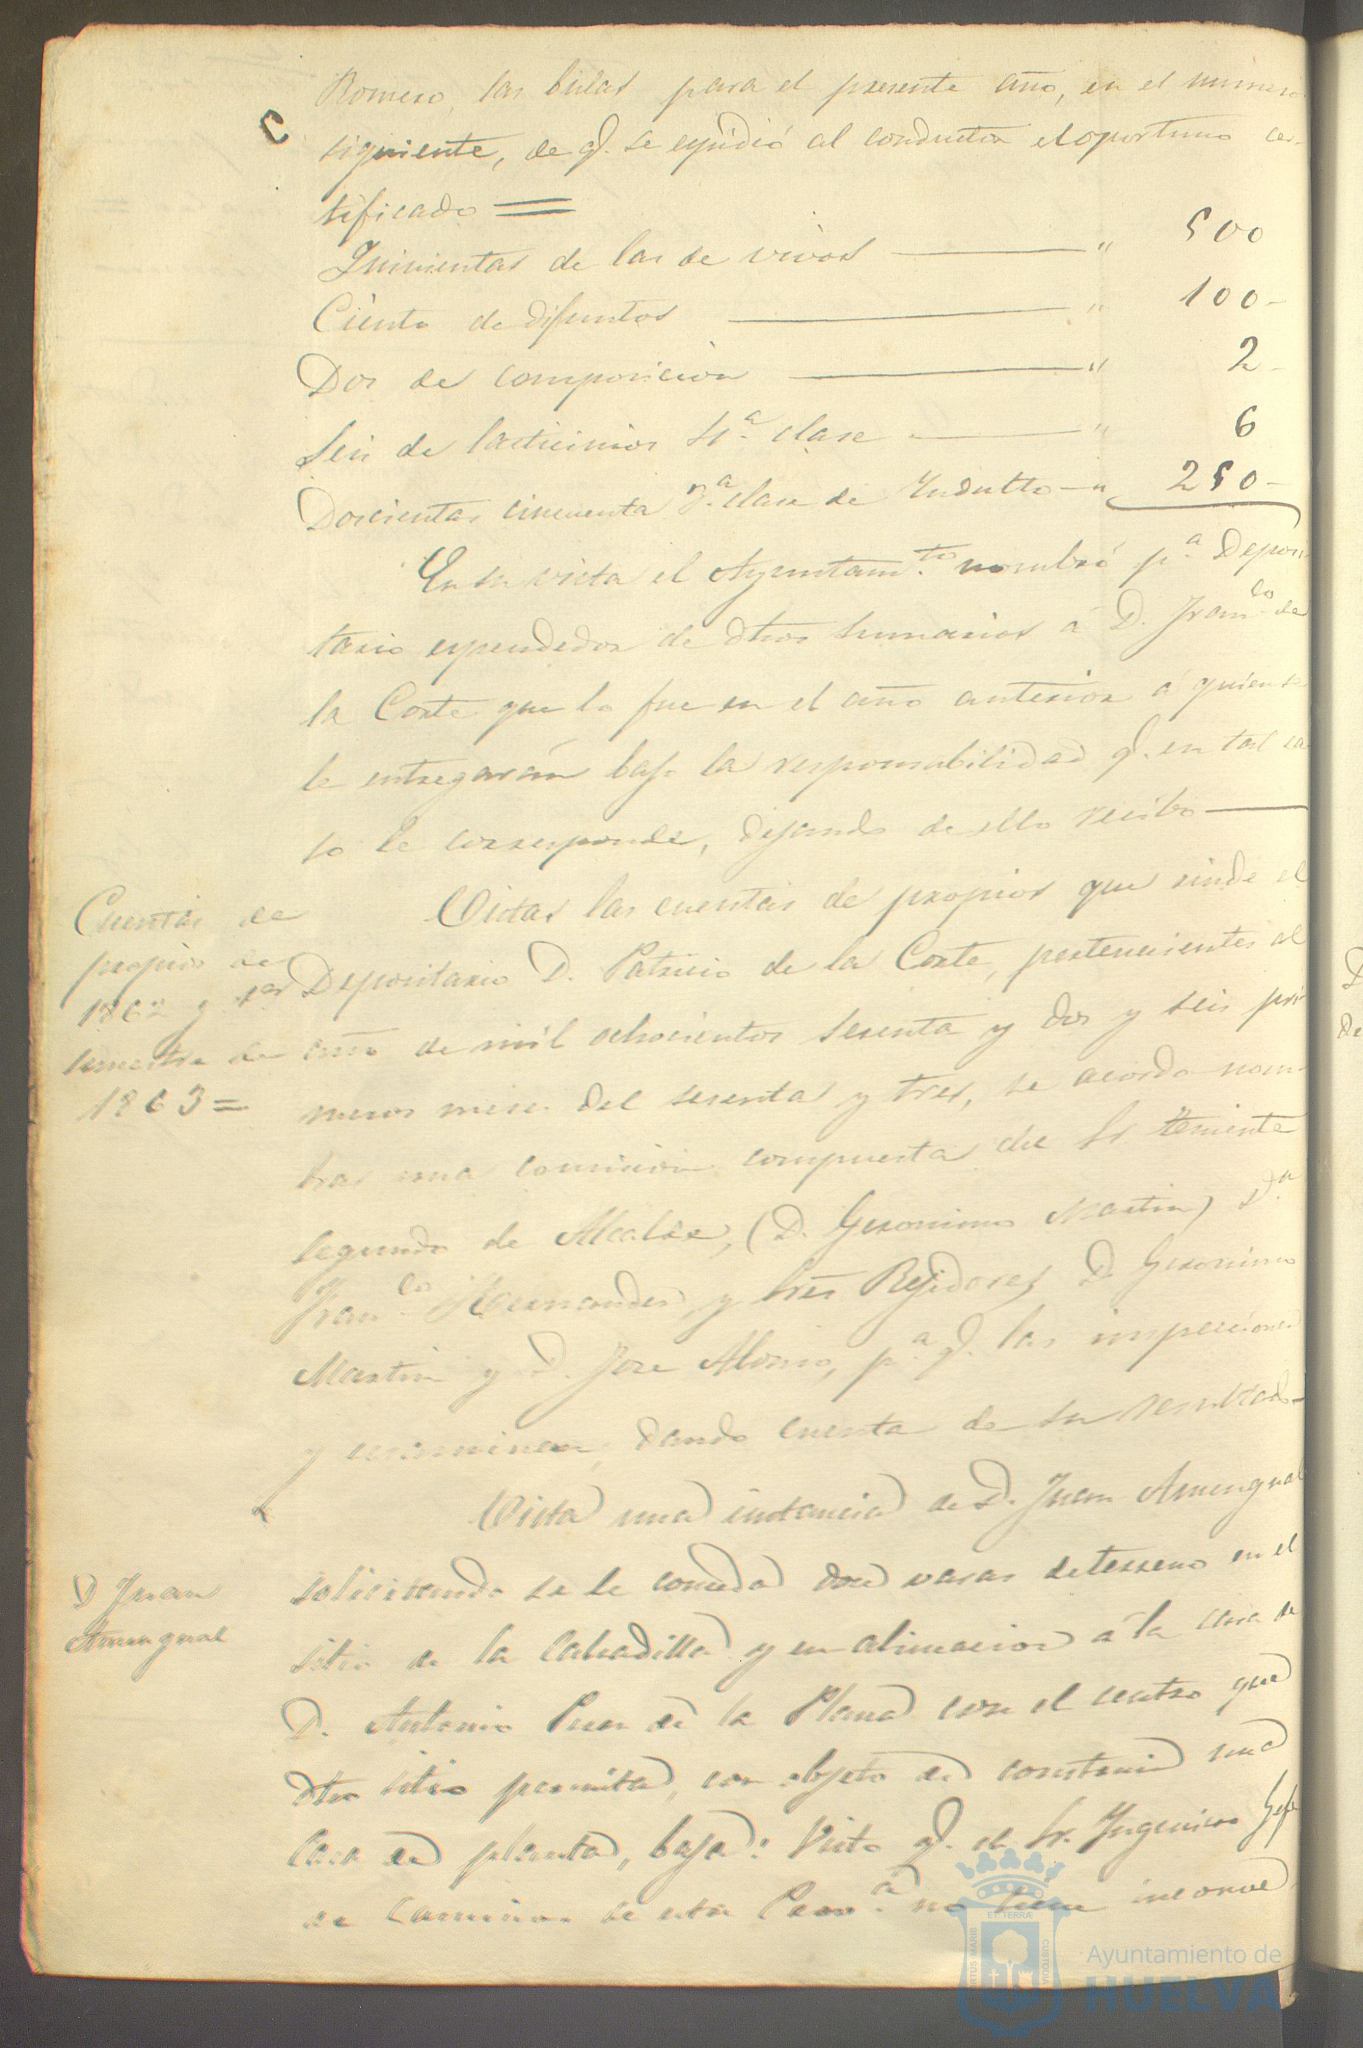 Romero, las bulas para el presente año, en el numero
C
siguiente, de q.e se espidió al conductor el oportuno cer-
tificado =
Quinientas de las de vivos — " 500
Ciento de difuntos — " 100-
Dos de composicion — " 2-
Seis de lacticinios 4.a clase — " 6
Doscientas cincuenta 3.a clase de Indulto — " 250-
En su vista el Ayuntam.to nombró p.a Deposi
tario espendedor de dhos sumarios á D. Fran.co de
la Corte que lo fue en el año anterior á quien se
le entregarán bajo la responsabilidad q.e en tal ca
so le corresponde, dejando de ello recibo —
Cuentas de
propios de
1862 y 1.er
semestre de
1863=
Vistas las cuentas de propios que rinde el
Depositario D. Patricio de la Corte, pertenecientes al
año de mil ochocientos sesenta y dos y seis pri
meros meses del sesenta y tres, se acordo nom-
brar una comision compuesta del Sr. teniente
segundo de Alcalde, (D. Geronimo Martin) D.n
Fran.co Hernandez y Sres Rejidores D. Geronimo
Martin y D. Jose Alonso, p.a q.e las inspeccionen
y examinen, dando cuenta de su resultado-
D Juan
Amengual
Vista una instancia de D. Juan Amengual
solicitando se le conceda doce varas de terreno en el
sitio de la Calzadilla y en alineacion á la casa de
D. Antonio Perez de la Plana con el centro que
dho sitio permita, con objeto de construir una
casa de planta baja: Visto q.e el Sr. Ingeniero Gefe
de Caminos de esta Prov.a no tiene inconve
ET TERRÆ
PORTUS MARIS
CUSTODIA
Ayuntamiento de
HUELVA